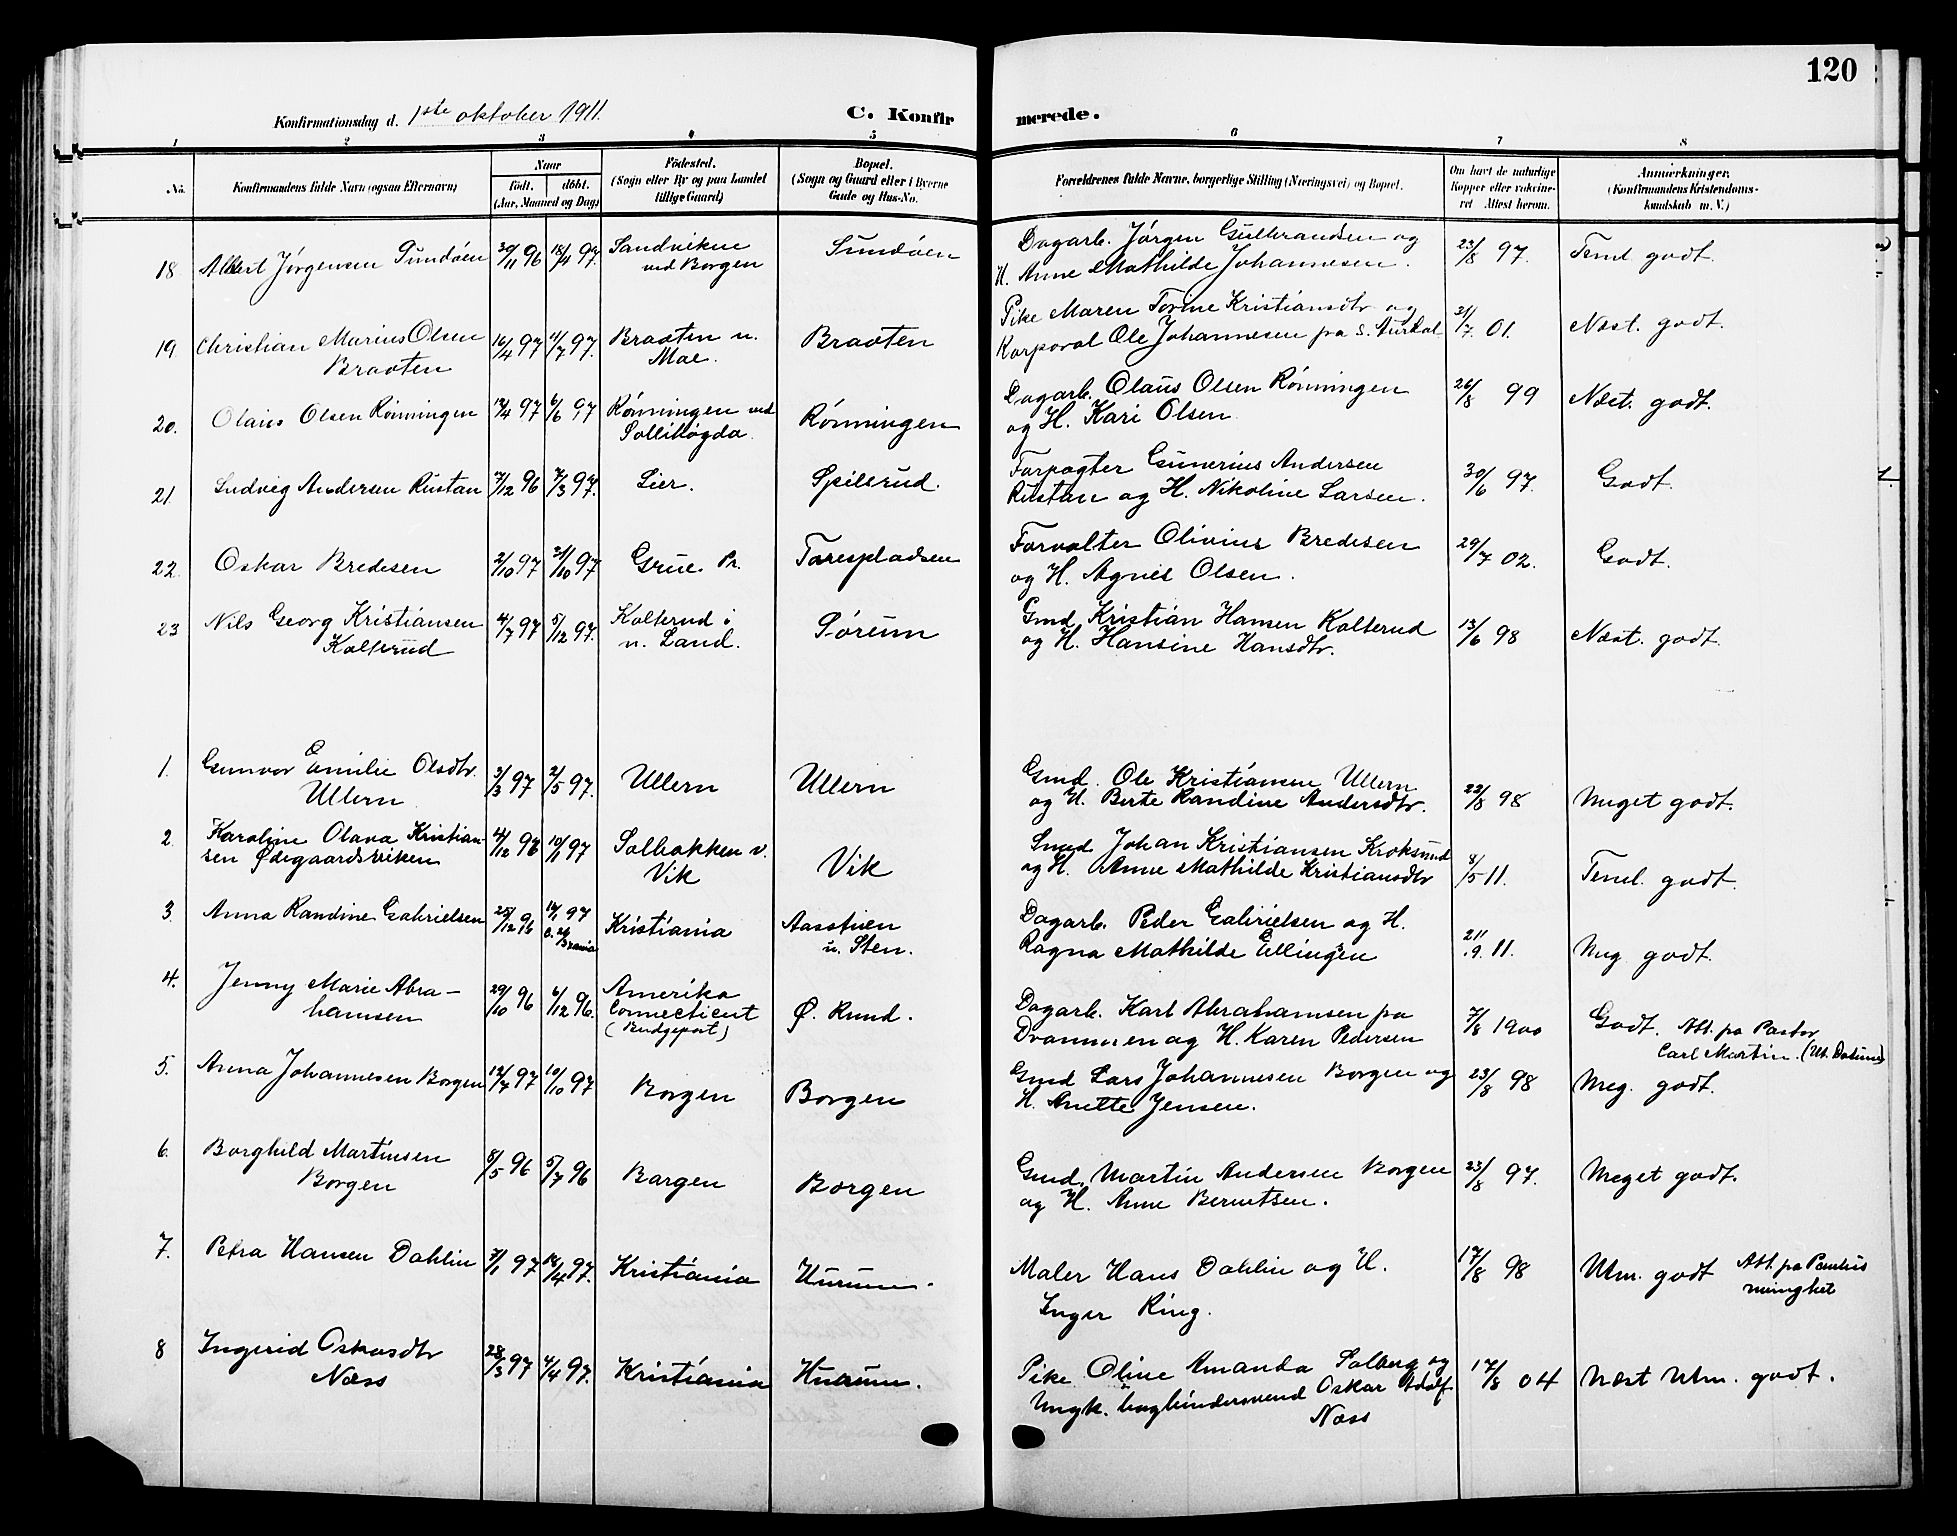 120
Konfirmationsdag d. 1ste oktober 1911.
C. Konfirmerede.
1 2 3 4 5 6 7 8
No.
Konfirmandens fulde Navn (ogsaa Efternavn)
Naar
födt. döbt.
(Aar, Maaned og Dag)
Födested.
(Sogn eller By og paa Landet
tillige Gaard)
Bopæl.
(Sogn og Gaard eller i Byerne
Gade og Hus-No.
Forældrenes fulde Navne, borgerlige Stilling (Næringsvei) og Bopæl.
Om havt de naturlige
Kopper eller vakcine-
ret Attest herom.
Anmærkninger.
(Konfirmandens Kristendoms-
kundskab m. V.)
18 Albert Jörgensen Sundöen 30/11 96 18/4 97. Sandviken
ved Borgen
Sundöen
Dagarb. Jörgen Gulbrandsen og
H. Anne Mathilde Johannesen.
23/8 97. Temel. godt.
19 Christian Marius Olsen
Braaten
16/4 97 11/7 97. Braaten u.
Moe.
Braaten
Pike Maren Torine Kristiansdtr og
Korporal Ole Johannesen fra S. Aurdal
31/7. 01. Næst. godt.
20. Olaus Olsen Rönningen 17/4 97 6/6 97 Rönningen ved
Sollihögda.
Rönningen
Dagarb. Olaus Olsen Rönningen
og H. Kari Olsen
26/8 99 Næst. godt.
21. Ludvig Andersen Rustan 17/12 96 7/3 97. Lier.
Speilsrud.
Forpagter Gunerius Andersen
Rustan og H. Nikoline Larsen.
30/6 97. Godt.
22. Oskar Bredesen 2/10 97 31/10 97 Grue Pr.
Torespladsen
Forvalter Olivius Bredesen
og H. Agnes Olsen.
29/7 02. Godt.
23 Nils Georg Kristiansen
Kolterud
4/7 97 5/12 97. Kolterud i
n. Land.
Sörum
Gmd Kristian Hansen Kolterud
og H. Hansine Hansdtr.
13/6 98 Næst. godt.
1. Gunvor Emilie Olsdtr.
Ullern
3/3 97 2/5 97. Ullern
Ullern
Gmd. Ole Kristiansen Ullern
og H. Berte Randine Andersdtr.
22/8 98 Meget godt.
2. Karoline Olava Kristian-
sen Ødegaardsviken
4/12 96 10/1 97 Solbakken v.
Vik
Vik
Smed Johan Kristiansen Kroksund
og H. Anne Mathilde Kristiansdtr
8/5 11. Temel. godt.
3. Anna Randine Gabrielsen 25/12 96 Kristiania
Aasstuen
u. Sten.
Dagarb. Peder Gabrielsen og H.
Ragna Mathilde Ellingsen
21/9. 11. Meg godt.
4. Jenny Marie Abra-
hamsen
29/10 96 6/12 96. Amerika
Connecticut
(Bridgeport)
Ø. Rund.
Dagarb. Karl Abrahamsen fra
Drammen og H. Karen Pedersen
7/8 1900 Godt. Att. fra Pastor
Carl Martin. (Ut. Datum)
5. Anna Johannesen Borgen 12/7 97 10/10 97 Borgen
Borgen
Gmd Lars Johannesen Borgen og
H. Anette Jensen.
23/8 98 Meg. godt.
6. Borghild Martinsen
Borgen
8/5 96 5/7 96 Borgen
Borgen
Gmd. Martin Andersen Borgen
og H. Anne Berntsen.
23/8 97. Meget godt.
7. Petra Hansen Dahlin 7/1 97 Kristiania
Hurum.
Maler Hans Dahlin og H.
Inger Ring.
17/8 98 Utm. godt Att. fra Paulus
menighet
8 Ingerid Oskarsdtr
Næss
28/3 97 4/4 97. Kristiania
Hurum.
Pike Oline Amanda Solberg og
Ungk. bogbindersvend Oskar Adolf
Næss
17/8 04 Næst Utm. godt.